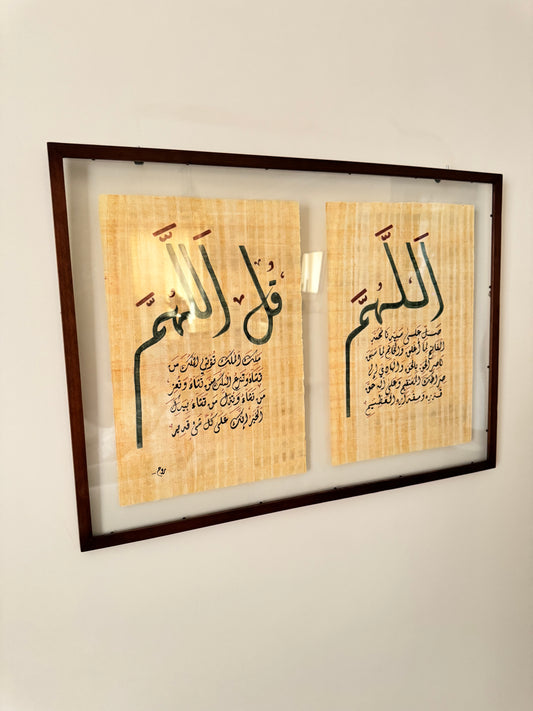 اللَّهُمَّ
صل على سيدنا محمد
الفاتح لما أغلق والخاتم لما سبق
ناصر الحق بالحق والهادي إلى
صراطك المستقيم وعلى آله حق
قدره ومقداره العظيم
قُلِ اللَّهُمَّ
ملك الملك تؤتي الملك من
تشاء وتنزع الملك ممن تشاء وتعز
من تشاء وتذل من تشاء بيدك
الخير إنك على كل شئ قدير